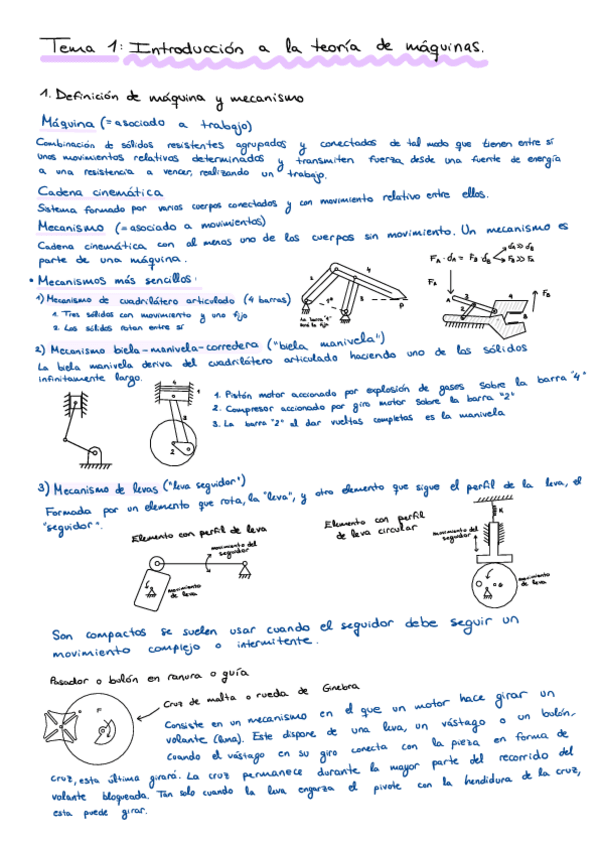 Tema 1: Introducción a la teoría de máquinas.
1. Definición de máquina y mecanismo
Máquina (= asociado a trabajo)
Combinación de sólidos resistentes agrupados y conectados de tal modo que tienen entre sí
unos movimientos relativos determinados y transmiten fuerza, desde una fuente de energía
a una resistencia a vencer, realizando un trabajo.
Cadena cinemática
Sistema formado por varios cuerpos conectados y con movimiento relativo entre ellos.
Mecanismo (= asociado a movimientos)
Cadena cinemática, con al menos uno de los cuerpos sin movimiento. Un mecanismo es
parte de una máquina.
FA · dA = FB dB
dA >> dB
FB >> FA
• Mecanismos más sencillos:
1) Mecanismo de cuadrilátero articulado (4 barras)
1. Tres sólidos con movimiento y uno fijo
2. Los sólidos rotan entre sí
2
4
3
1º
P
La barra "1"
será la fija
FA
A
3
2
4
B
FB
2) Mecanismo biela-manivela-corredera ("biela manivela")
La biela manivela deriva del cuadrilátero articulado haciendo uno de los sólidos
infinitamente largo.
4
1
3
2
1. Pistón motor accionado por explosión de gases sobre la barra "4"
2. Compresor accionado por giro motor sobre la barra "2"
3. La barra "2" al dar vueltas completas es la manivela
3) Mecanismo de levas ("leva seguidor")
Formada por un elemento que rota, la "leva", y otro elemento que sigue el perfil de la leva, el
"seguidor".
Elemento con perfil de leva
movimiento del
seguidor
movimiento
de leva
Elemento con perfil
de leva circular
K
movimiento del
seguidor
movimiento
de leva
Son compactos se suelen usar cuando el seguidor debe seguir un
movimiento complejo o intermitente.
Pasador o bulón en ranura o guía
Cruz de malta o rueda de Ginebra
Consiste en un mecanismo en el que un motor hace girar un
volante (leva). Este dispone de una leva, un vástago o un bulón.
Cuando el vástago en su giro conecta con la pieza en forma de
cruz, esta última girará. La cruz permanece durante la mayor parte del recorrido del
volante bloqueada. Tan solo cuando la leva engarza el pivote con la hendidura de la cruz,
esta puede girar.